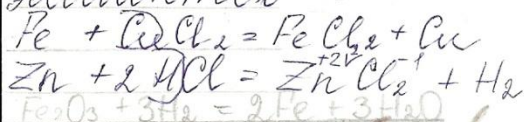 Fe + CuCl2 = FeCl2 + Cu
Zn + 2HCl = Zn+2Cl2-1 + H2
Fe2O3 + 3H2 = 2Fe + 3H2O